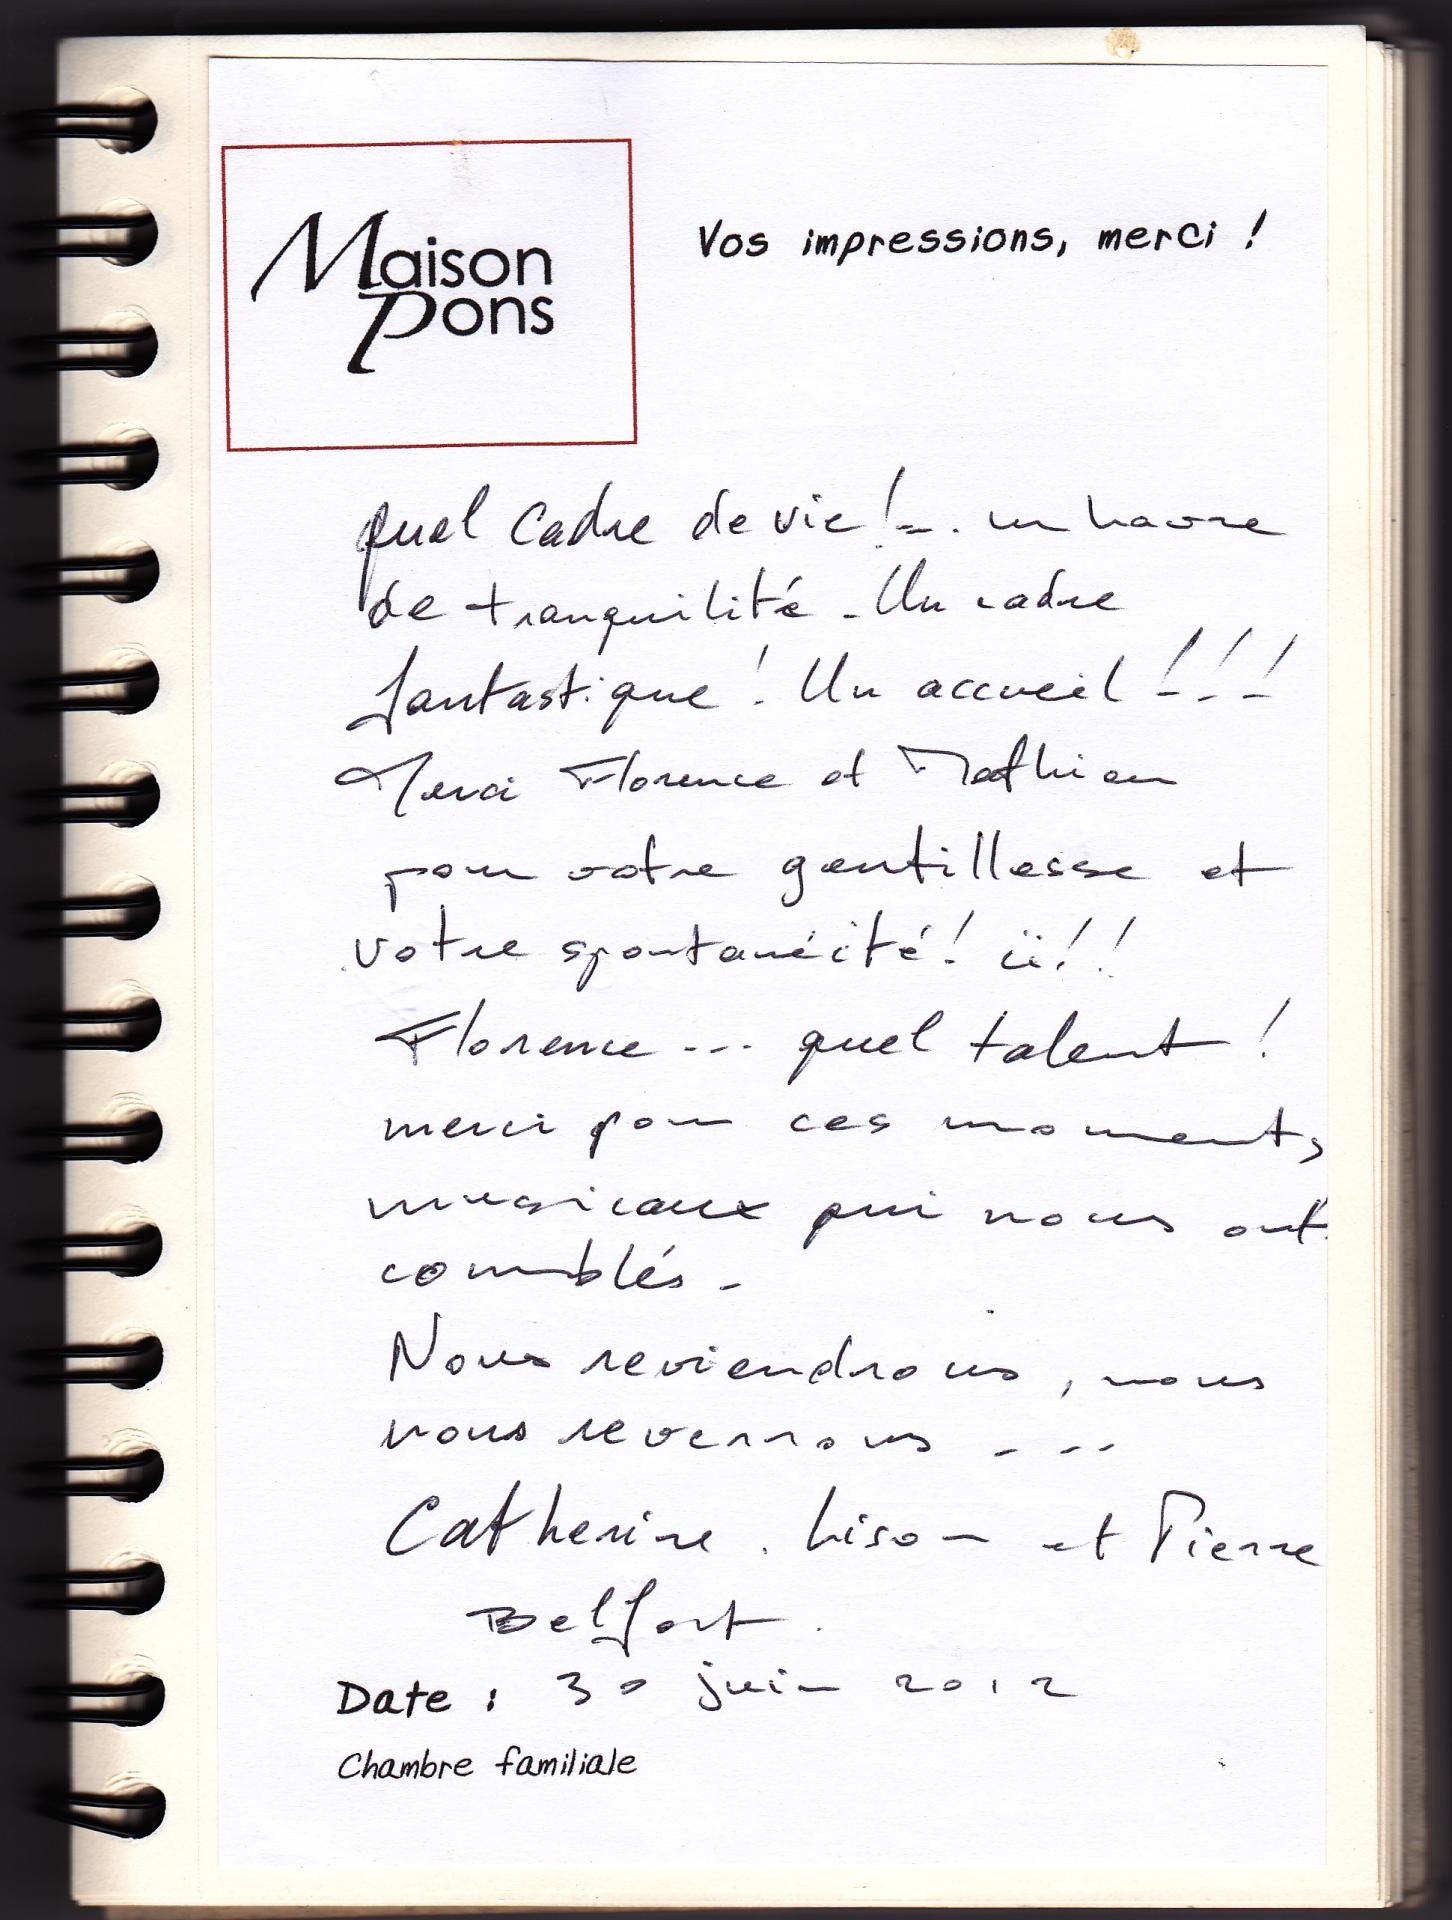 Maison
Pons
Vos impressions, merci !
quel cadre de vie !... un havre
de tranquilité - Un cadre
fantastique ! Un accueil !!!
Merci Florence et Mathieu
pour votre gentillesse et
votre spontanéité ! !!
Florence ... quel talent !
merci pour ces moments
musicaux qui nous ont
comblés -
Nous reviendrons, nous
nous reverrons ...
Catherine. Lison et Pierre
Belfort.
Date : 30 juin 2012
Chambre familiale